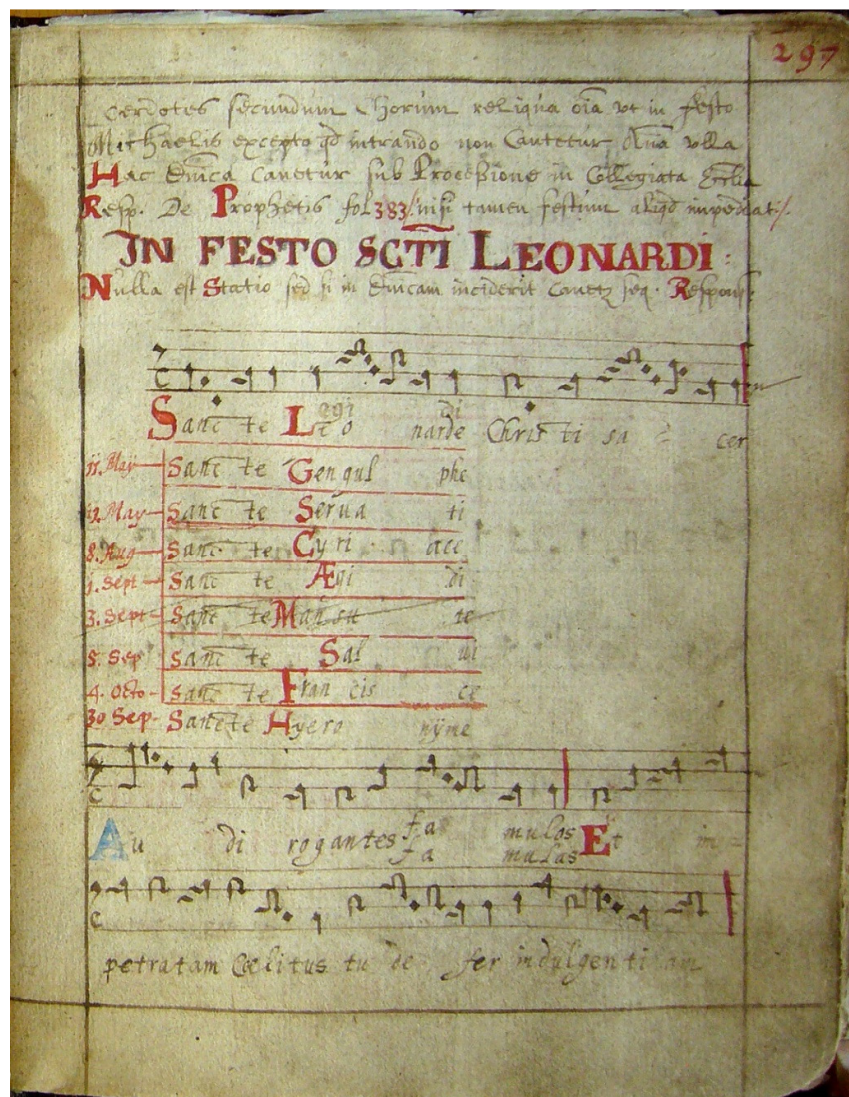 297
cerdotes secundum Chorum reliqua oīa vt in festo
Michaelis excepto qd intrando non Cantetur Aña vlla
Hac Dnīca Canetur sub Processione in Collegiata Ecclīa
Resp. De Prophetis fol 383/. nisi tamen festum aliqd impediat/.
IN FESTO SCTI LEONARDI:
Nulla est Statio sed si in Dnīcam inciderit Canetz seq. Respons:
Egi di
Sanc te Leo narde Christi sa = cer
11. May Sanc te Gengul phe
May Sanc te Serua ti
8. Aug Sanc te Cyri ace
1. Sept Sanc te Ægi di
3. Sept Sanc te Mansu te
5. Sep Sanc te Sal ui
4. Octo Sanc te Fran cis ce
30 Sep. Sancte Hyero nÿme
Au di rogantes fa mulos Et im =
fa mulas
petratam Cœlitus tu de fer indulgenti am